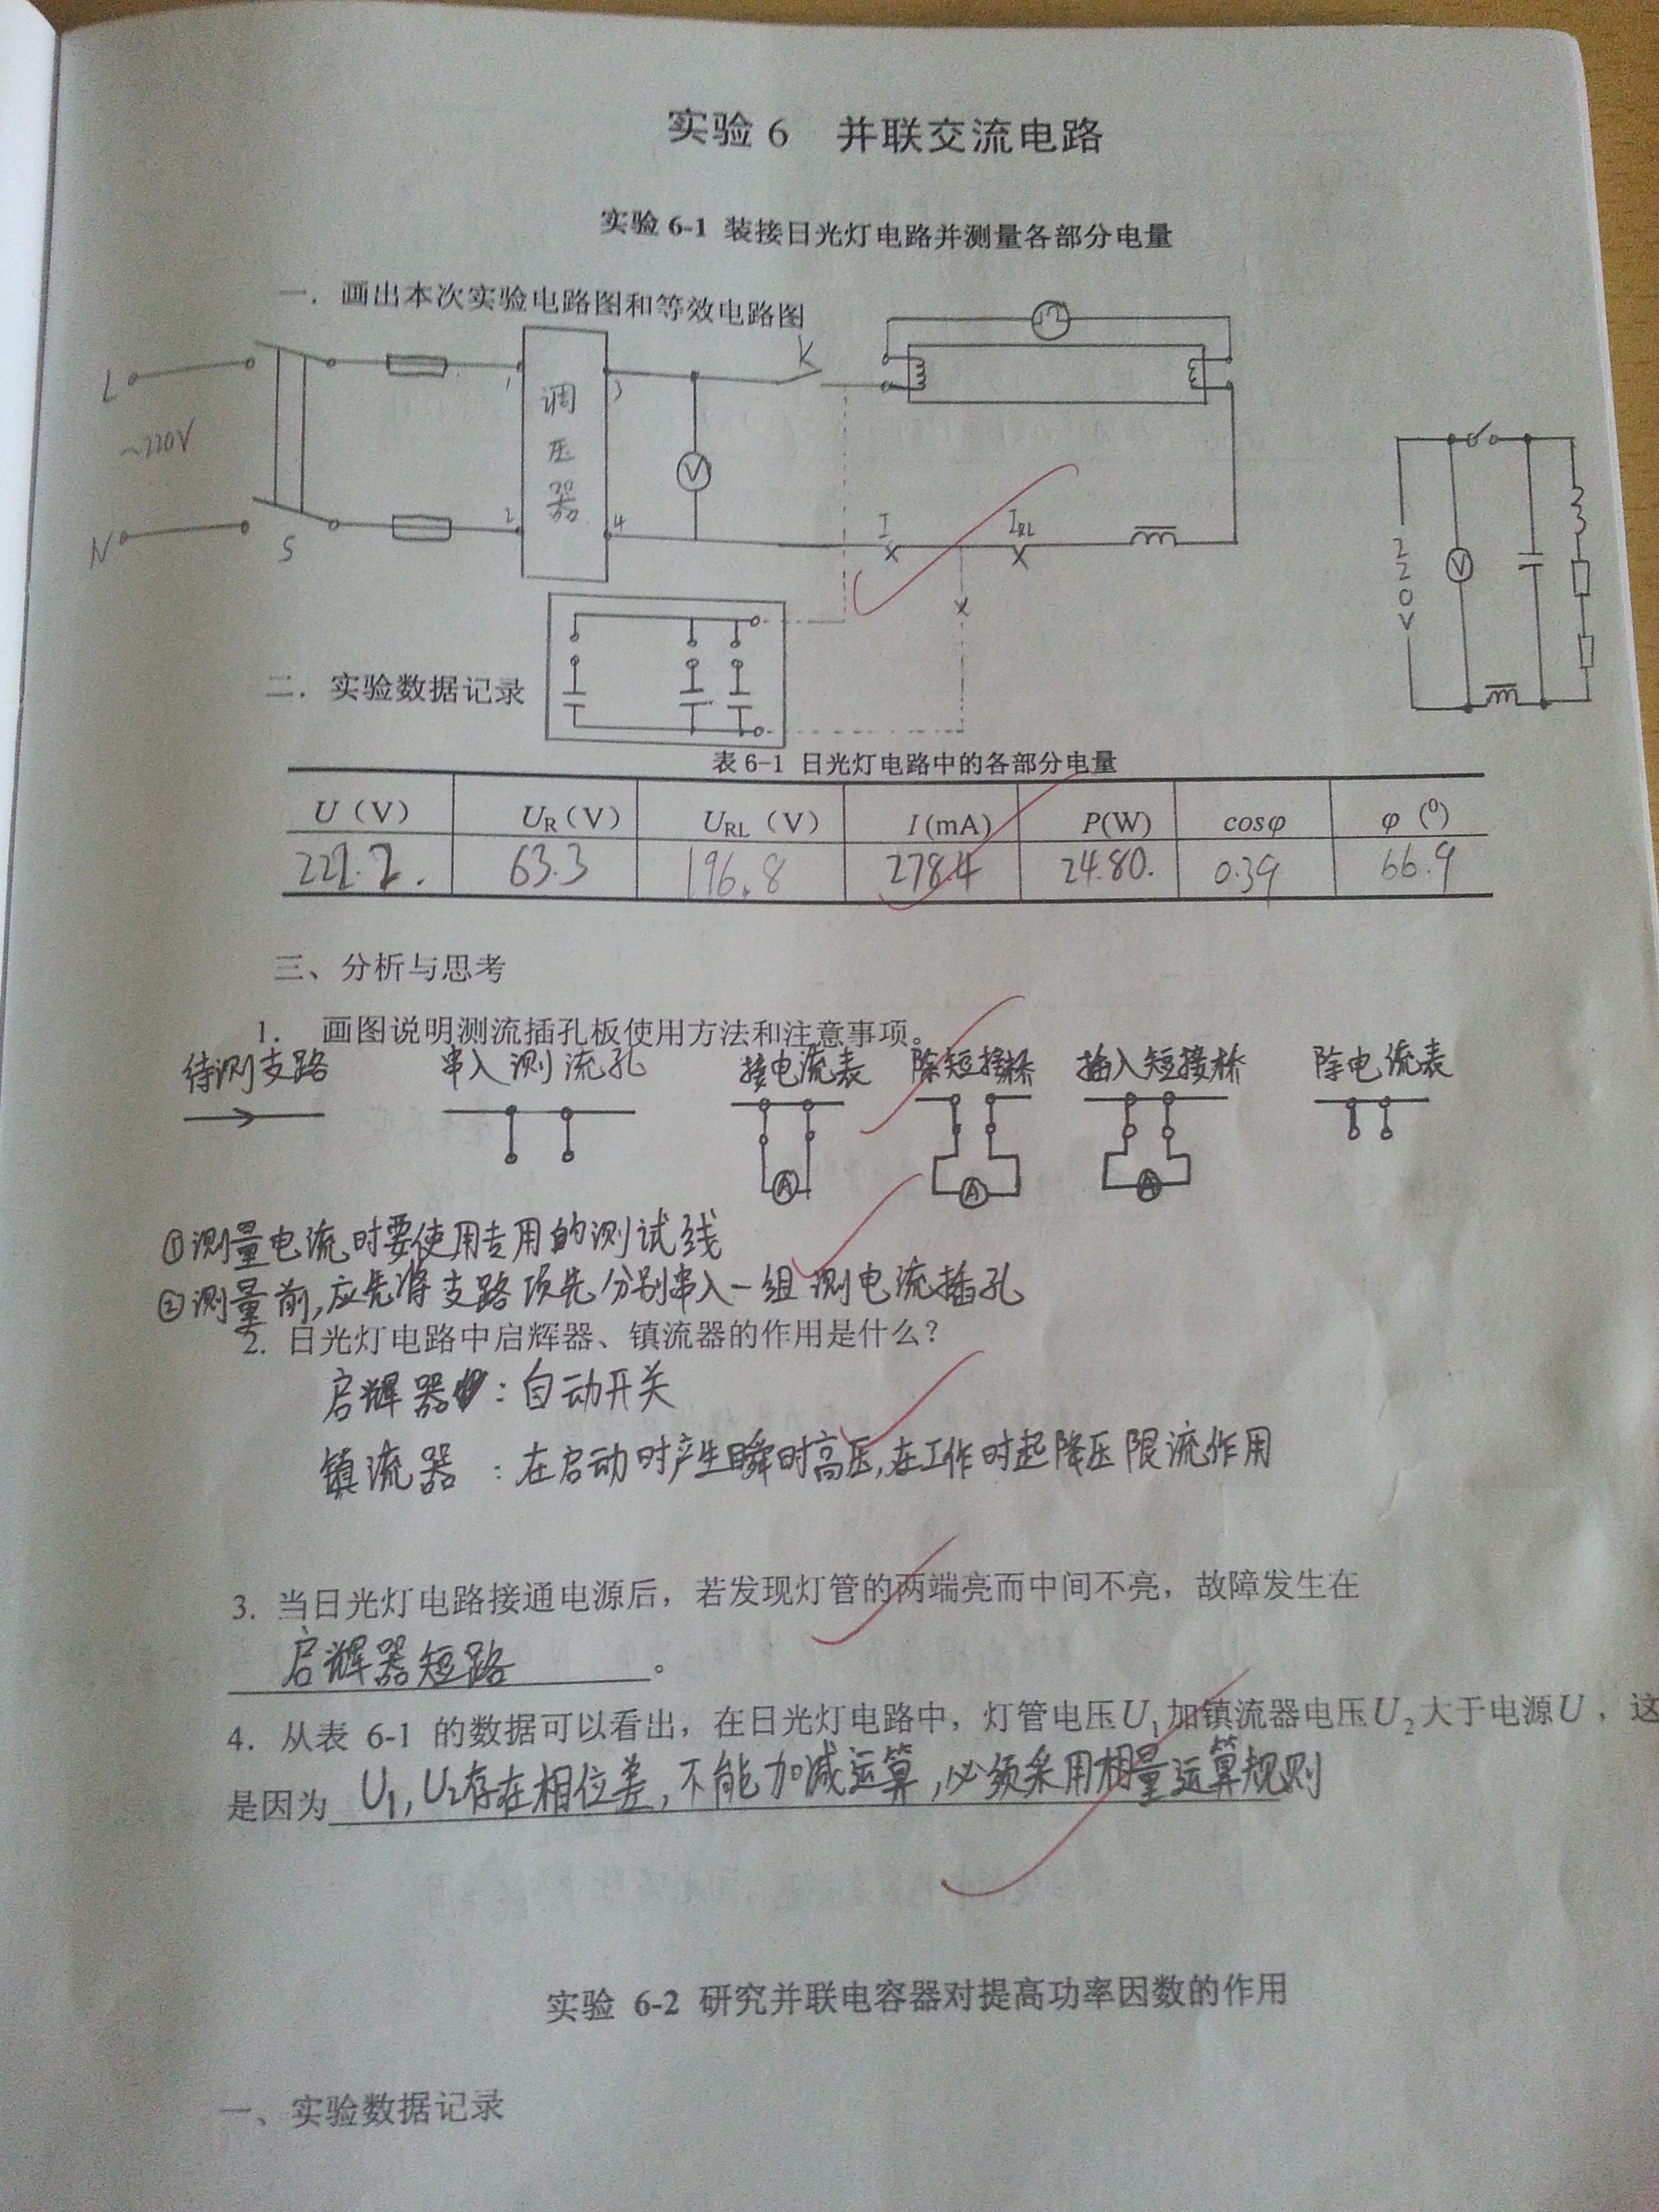 实验 6 并联交流电路
实验 6-1 装接日光灯电路并测量各部分电量
一. 画出本次实验电路图和等效电路图
L
~220V
N
S
1
2
调压器
3
4
V
K
I
I_RL
220V
V
二. 实验数据记录
表 6-1 日光灯电路中的各部分电量
U（V） U_R（V） U_RL（V） I(mA) P(W) cosφ φ（⁰）
63.3 196.8 278.4 24.80. 0.39 66.9
三、分析与思考
1. 画图说明测流插孔板使用方法和注意事项。
待测支路 串入测流孔 接电流表 除短接桥 插入短接桥 除电流表
A A A
①测量电流时要使用专用的测试线
②测量前,应先将支路预先分别串入一组测电流插孔
2. 日光灯电路中启辉器、镇流器的作用是什么？
启辉器：自动开关
镇流器：在启动时产生瞬时高压,在工作时起降压限流作用
3. 当日光灯电路接通电源后，若发现灯管的两端亮而中间不亮，故障发生在
启辉器短路。
4. 从表 6-1 的数据可以看出，在日光灯电路中，灯管电压U₁加镇流器电压U₂大于电源U，这
是因为 U₁,U₂存在相位差,不能加减运算,必须采用相量运算规则
实验 6-2 研究并联电容器对提高功率因数的作用
一、实验数据记录